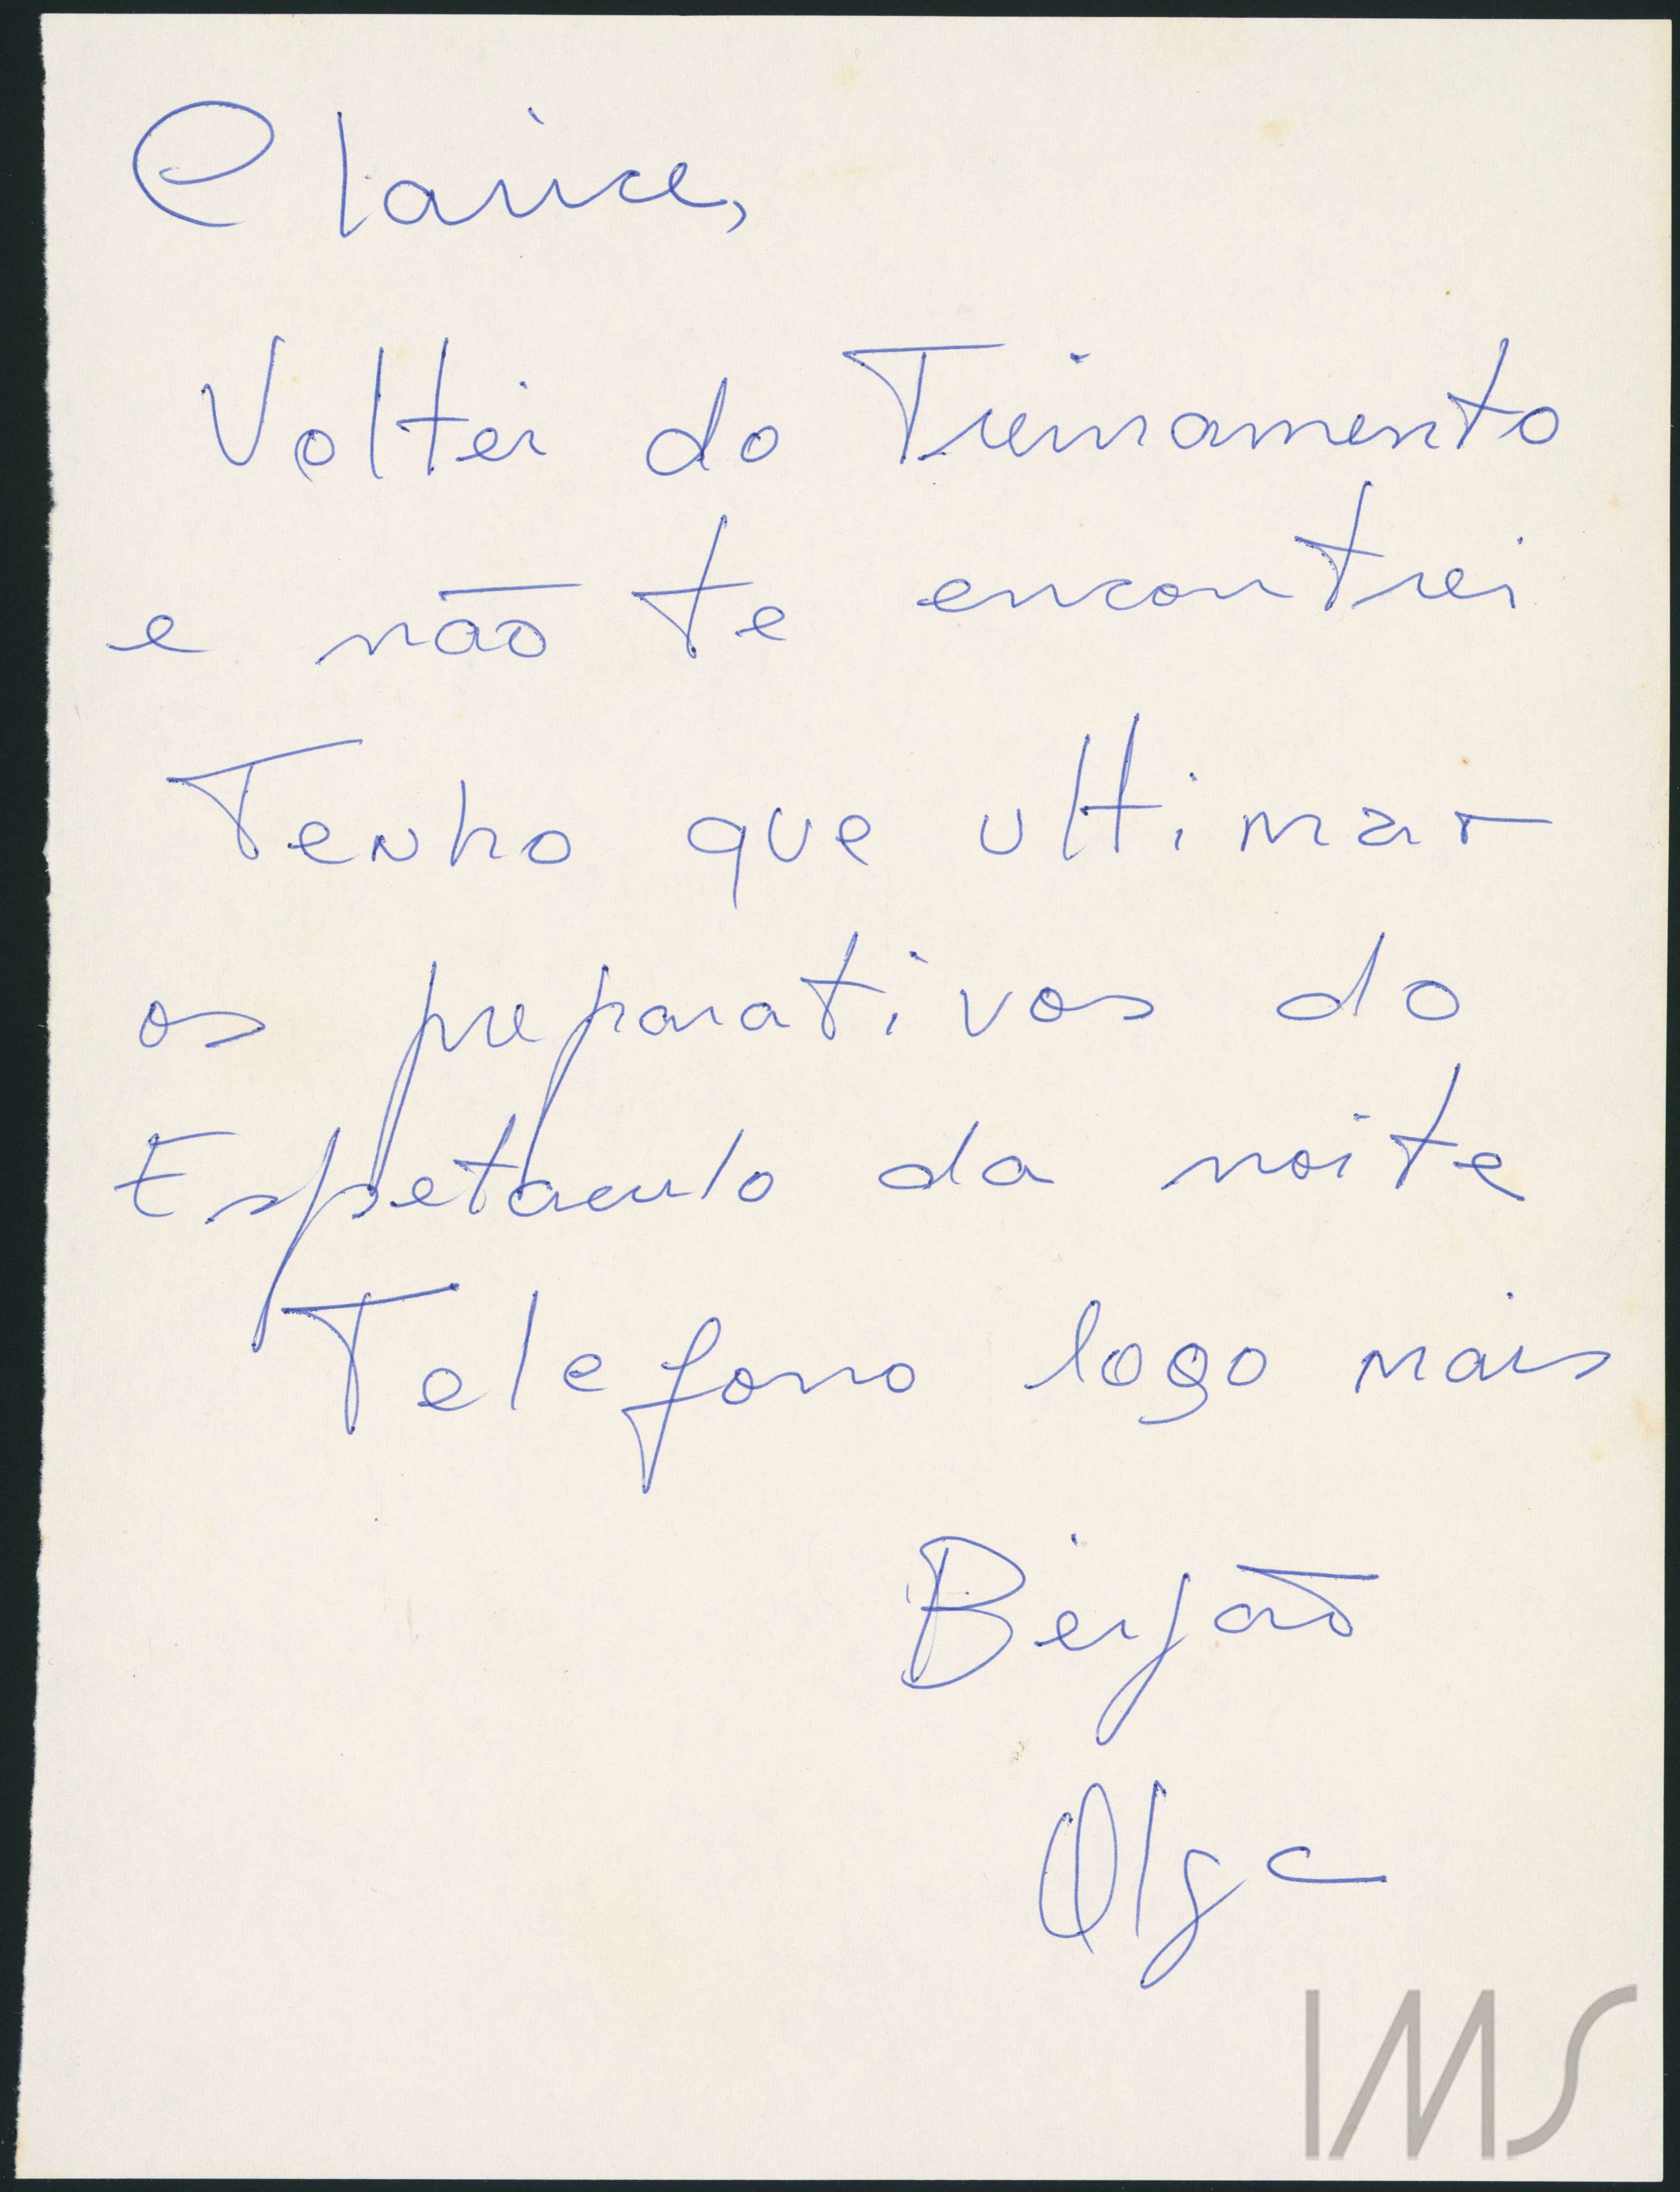 Clarice,
Voltei do Treinamento
e não te encontrei
Tenho que ultimar
os preparativos do
Espetaculo da noite
Telefono logo mais
Beijão
Olga
IMS